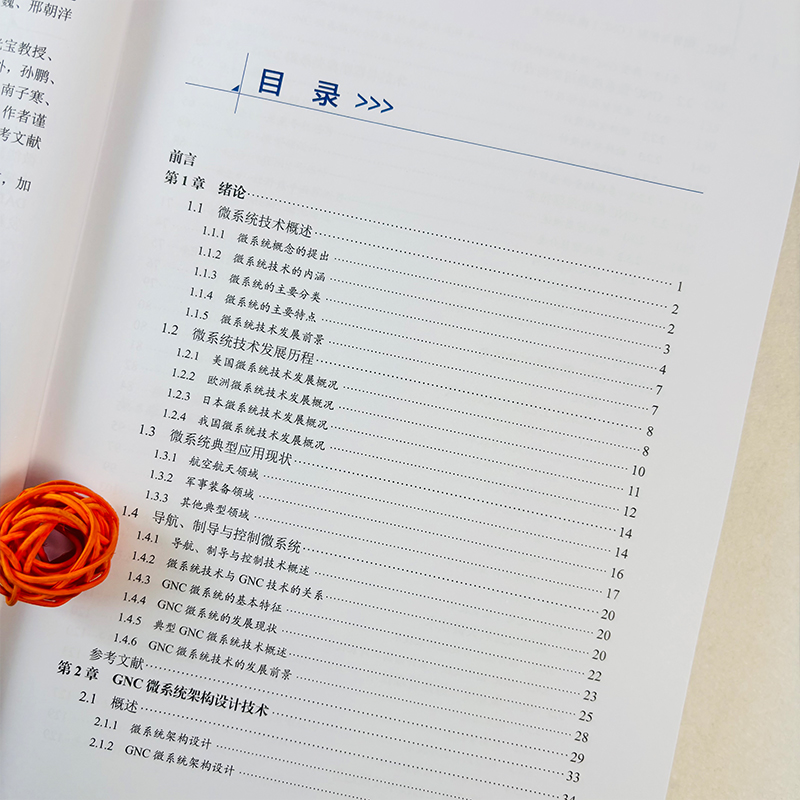 巍、邢朝洋
宝教授、
，孙鹏、
南子寒、
作者谨
考文献
，加
目 录 >>>
前言
第1章 绪论 1
1.1 微系统技术概述 2
1.1.1 微系统概念的提出 2
1.1.2 微系统技术的内涵 3
1.1.3 微系统的主要分类 4
1.1.4 微系统的主要特点 7
1.1.5 微系统技术发展前景 7
1.2 微系统技术发展历程 8
1.2.1 美国微系统技术发展概况 8
1.2.2 欧洲微系统技术发展概况 10
1.2.3 日本微系统技术发展概况 11
1.2.4 我国微系统技术发展概况 12
1.3 微系统典型应用现状 14
1.3.1 航空航天领域 14
1.3.2 军事装备领域 16
1.3.3 其他典型领域 17
1.4 导航、制导与控制微系统 20
1.4.1 导航、制导与控制技术概述 20
1.4.2 微系统技术与 GNC 技术的关系 20
1.4.3 GNC 微系统的基本特征 22
1.4.4 GNC 微系统的发展现状 23
1.4.5 典型 GNC 微系统技术概述 25
1.4.6 GNC 微系统技术的发展前景 28
参考文献 29
第2章 GNC 微系统架构设计技术 33
2.1 概述 34
2.1.1 微系统架构设计
2.1.2 GNC 微系统架构设计